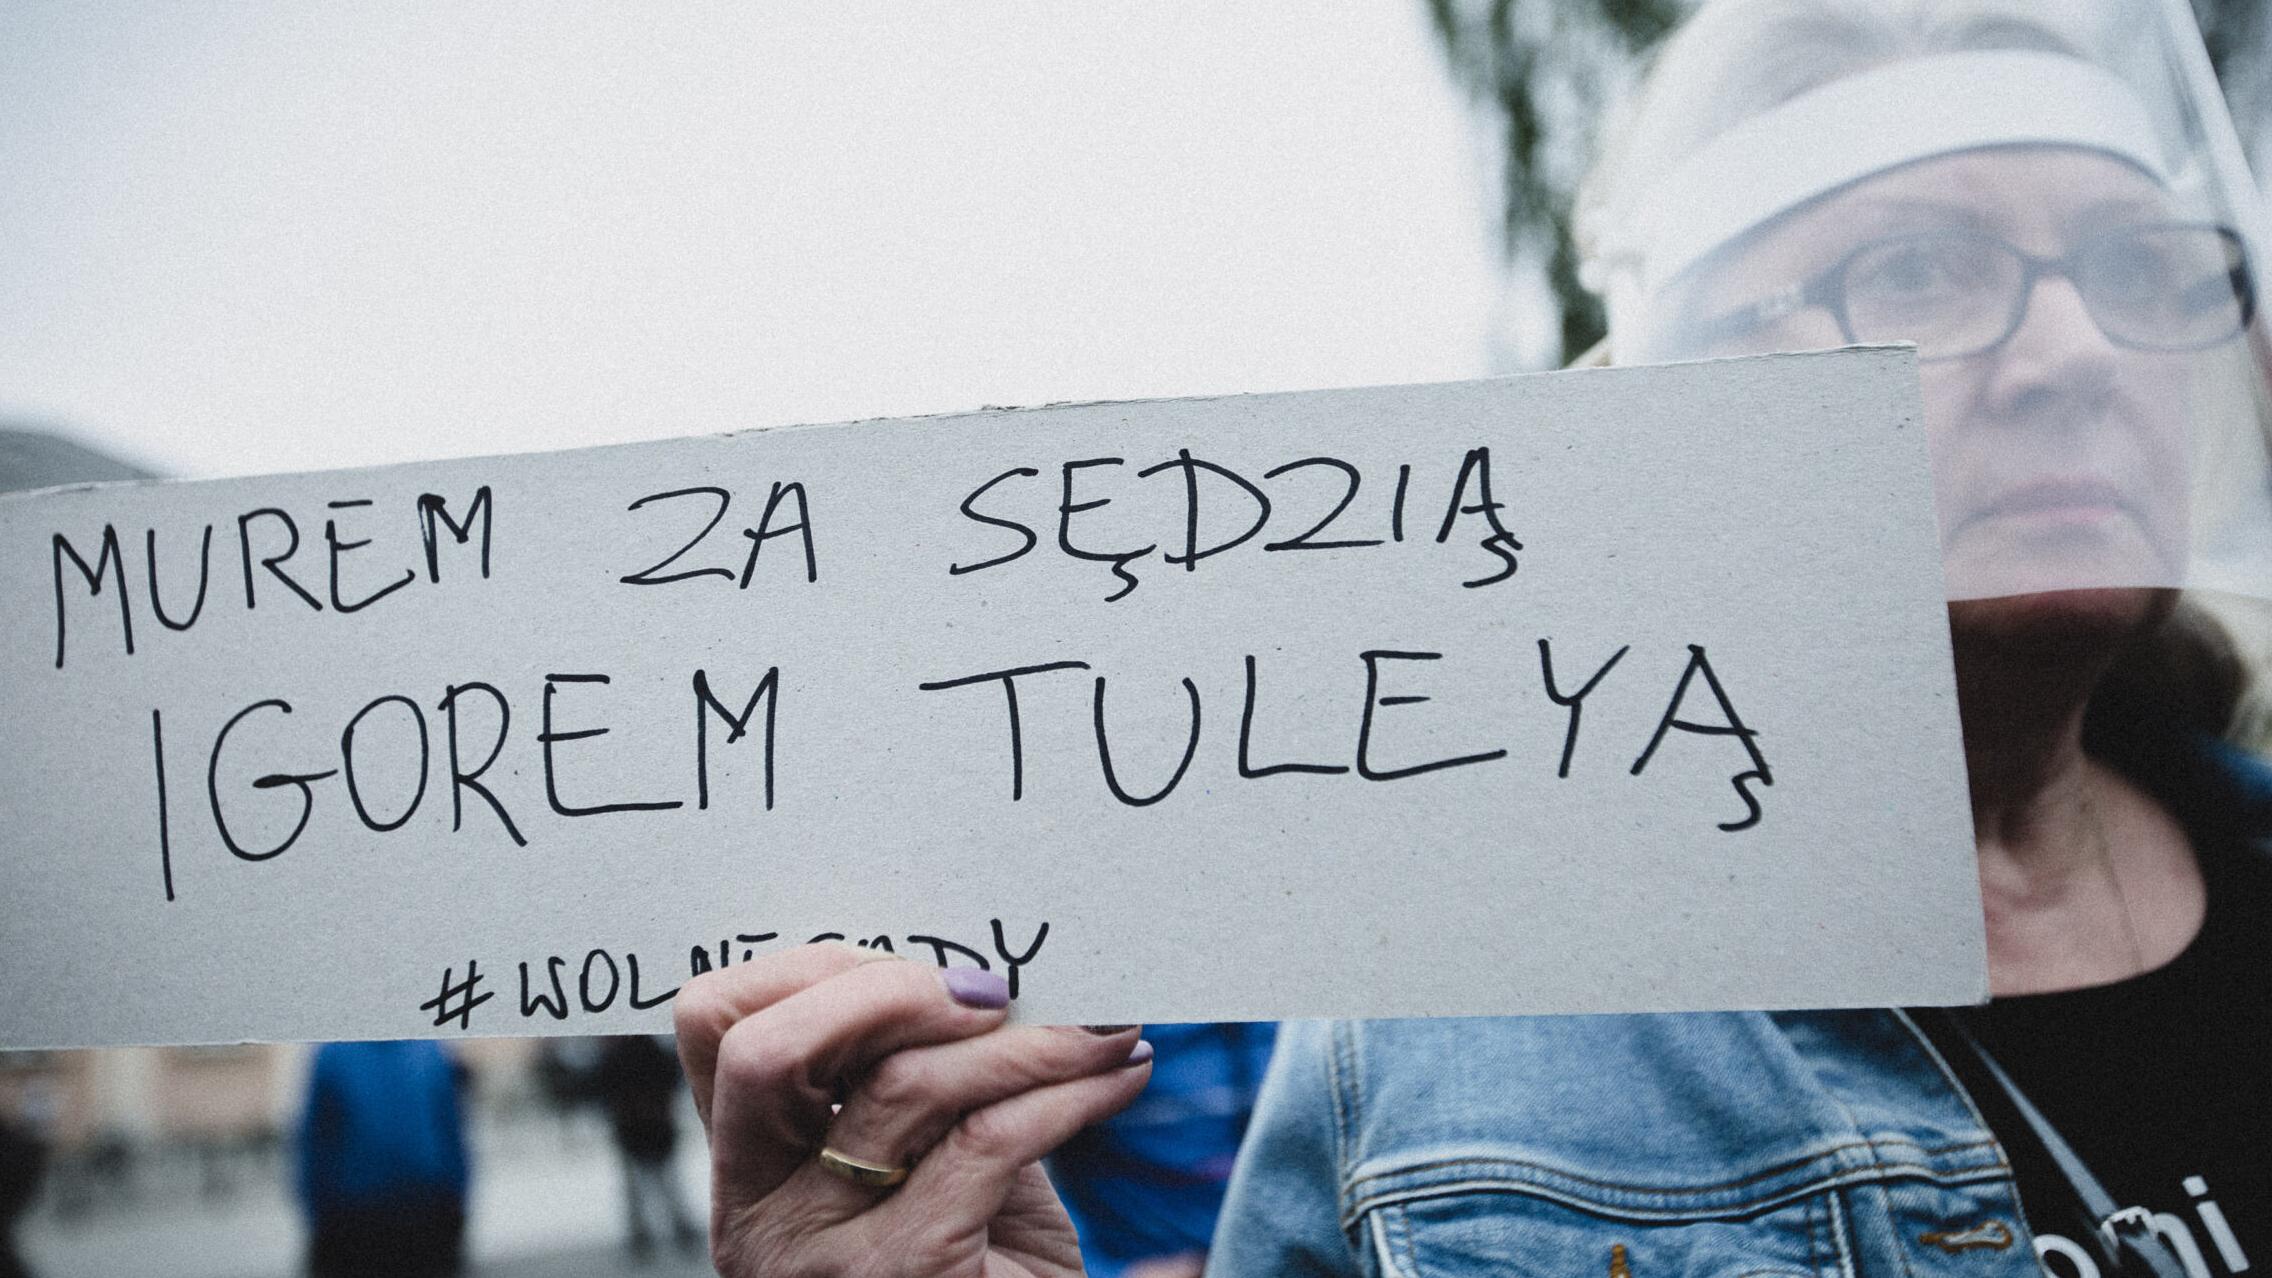 MUREM ZA SĘDZIĄ
IGOREM TULEYĄ
#WOLNESĄDY